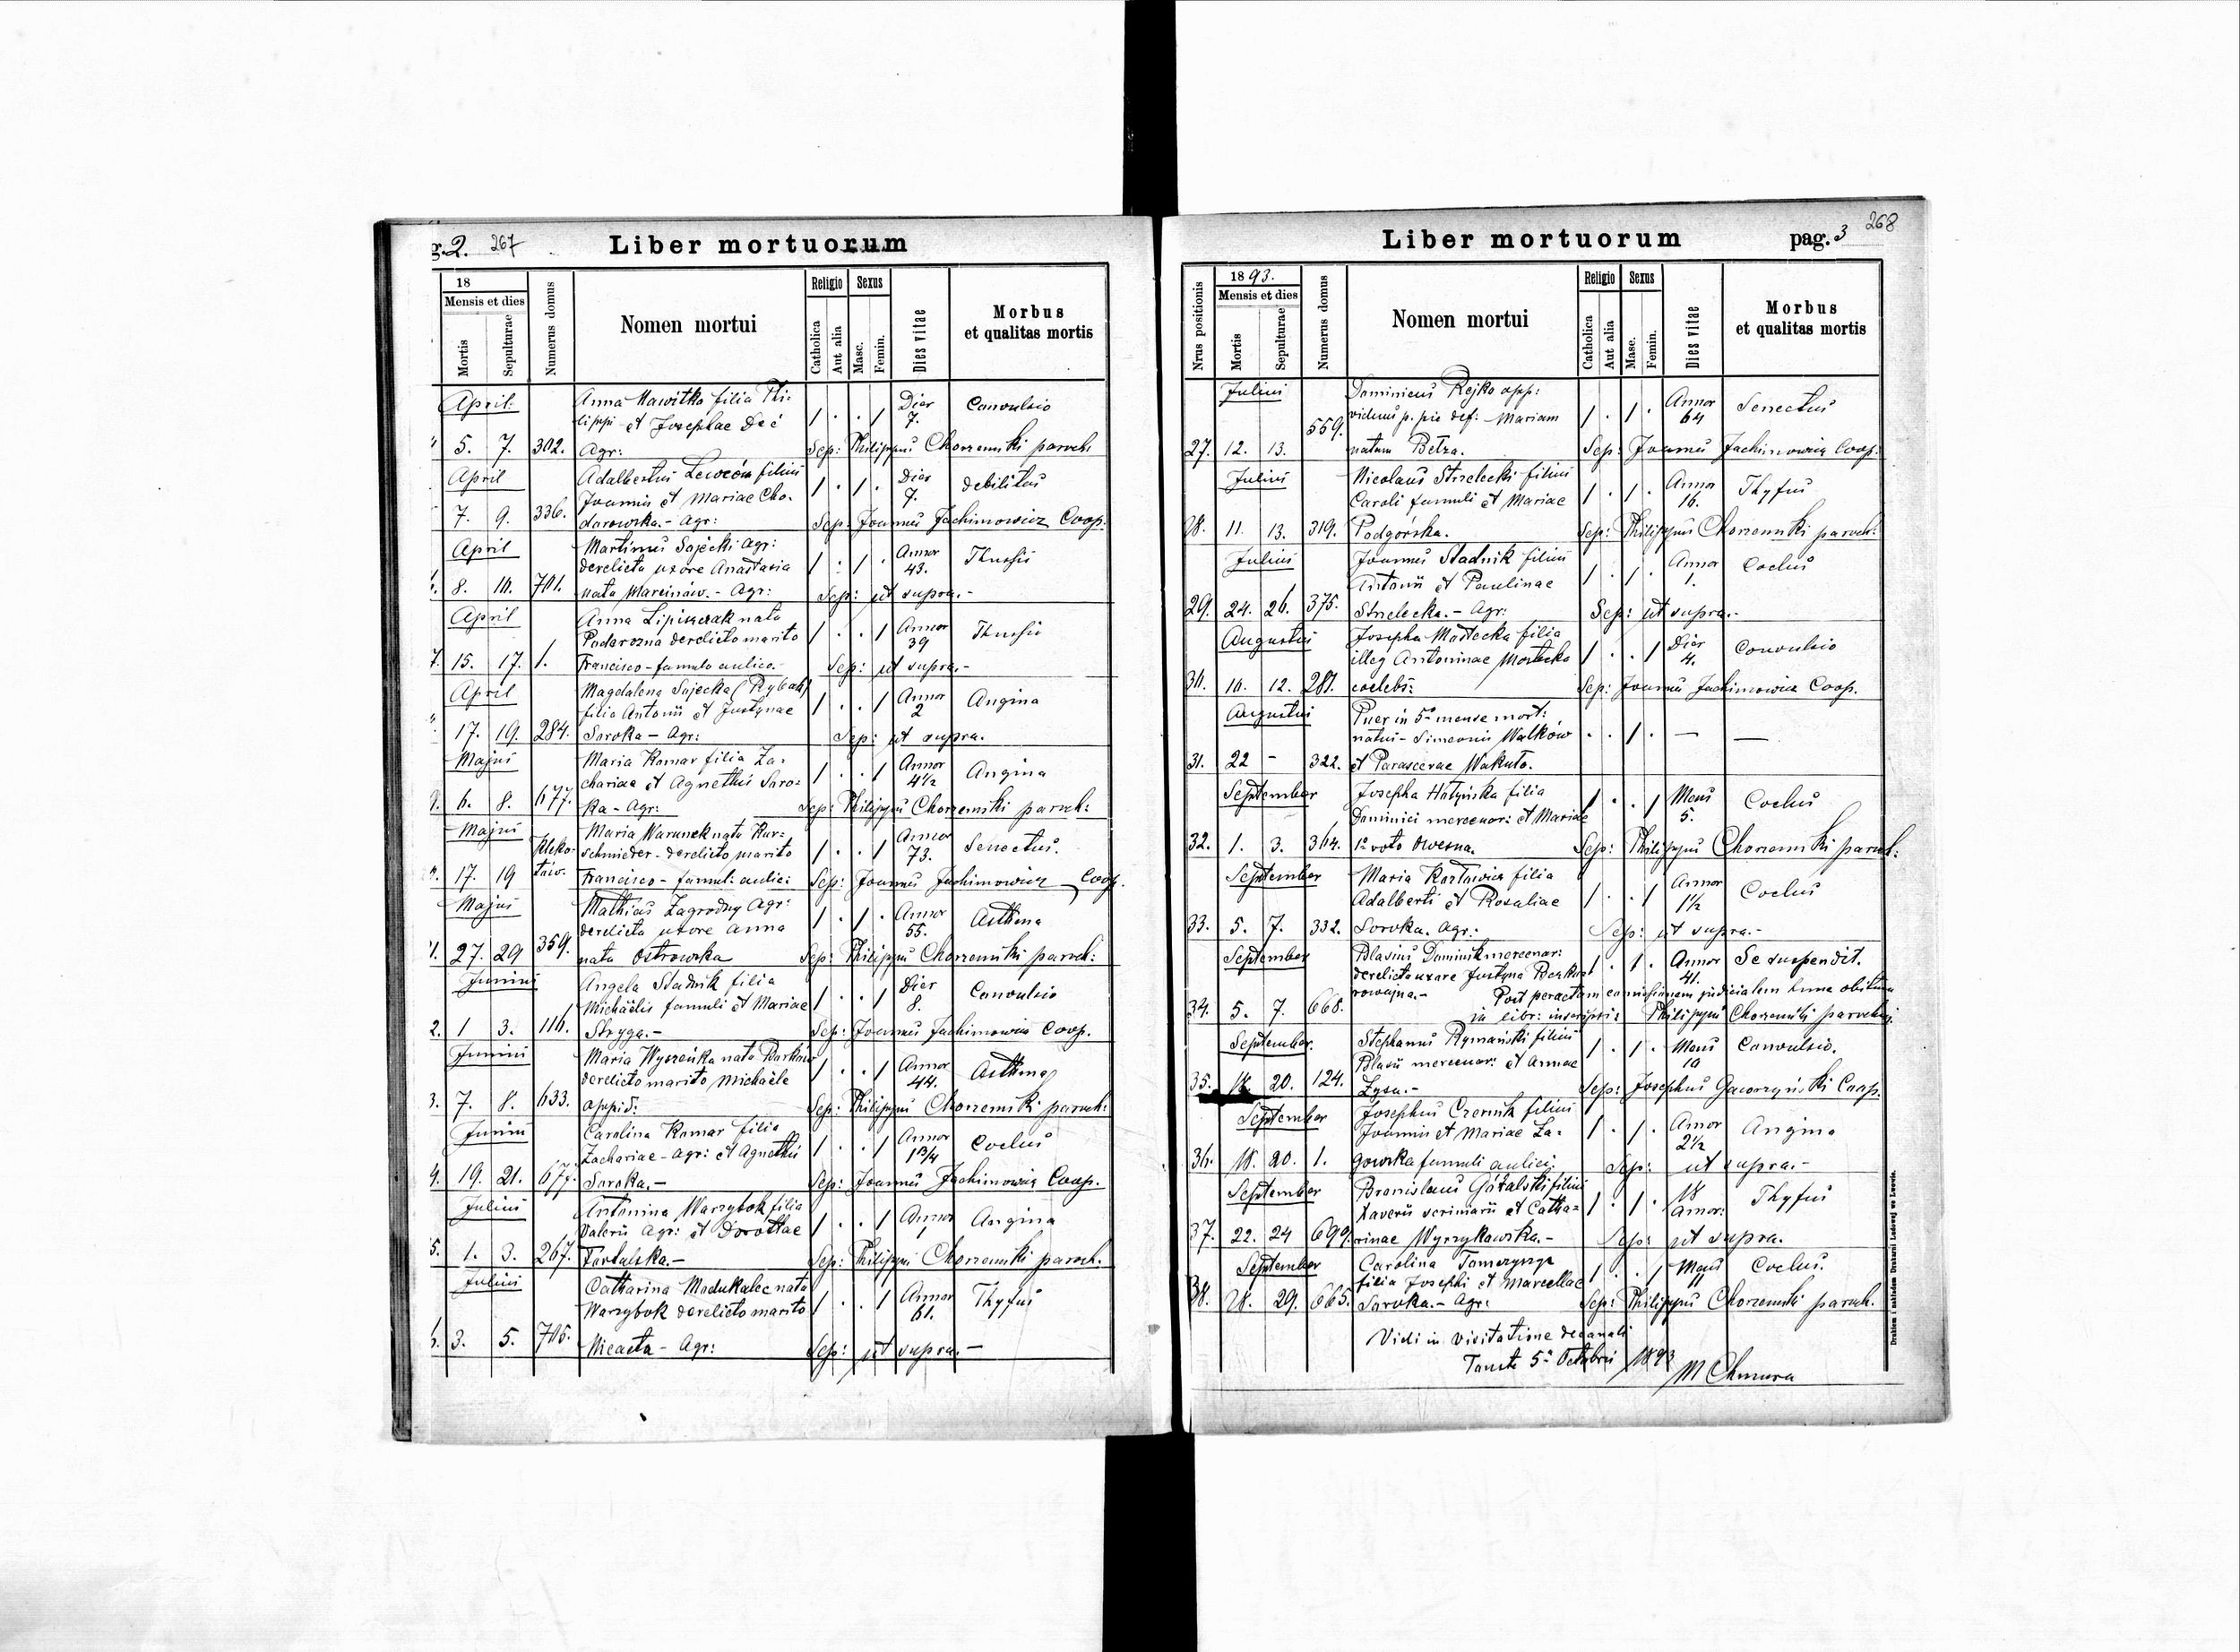 g. 2. 267 Liber mortuorum
18
Mensis et dies
Mortis Sepulturae Numerus domus Nomen mortui Religio Catholica Aut alia Sexus Masc. Femin. Dies vitae Morbus et qualitas mortis
April: Anna Hawitko filia Phi- Dier Convulsio
lippi et Josephae Deć 1 . . 1 7.
5. 7. 302. Agr: Sep: Philippus Chorzemski paroch:
April Adalbertus Lewców filius Dier debilitas
Joannis et Mariae Cho- 1 . 1 . 7.
7. 9. 336. darowska. - Agr: Sep: Joannes Jachimowicz Coop.
April Martinus Sajecki Agr: Annor Thussis
derelicta uxore Anastasia 1 . 1 . 43.
8. 10. 701. nata Marcinów. - Agr: Sep: ut supra. -
April Anna Lipiszczak nata Annor Thussis
Podarozna derelicto marito 1 . . 1 39
15. 17. 1. Francisco - famulo aulico. - Sep: ut supra. -
April Magdalena Sajecka (Rybak) Annor Angina
filia Antonii et Justynae 1 . . 1 2
17. 19. 284. Soroka - Agr: Sep: ut supra.
Majus Maria Komar filia Za- Annor Angina
chariae et Agnethis Soro- 1 . . 1 4½
6. 8. 677. ka - Agr: Sep: Philippus Chorzemski paroch:
Majus Maria Warunek nata Kur- Annor Senectus.
schmieder - derelicto marito 1 . . 1 73.
17. 19 Francisco - famul: aulic: Sep: Joannes Jachimowicz Coop.
Majus Mathias Zagrodny Agr: Annor Asthma
derelicta uxore Anna 1 . 1 . 55.
27. 29 359. nata Ostrowska Sep: Philippus Chorzemski paroch:
Junius Angela Stadnik filia Dier Convulsio
Michaëlis famuli et Mariae 1 . . 1 8.
1 3. 116. Stryga. - Sep: Joannes Jachimowicz Coop.
Junius Maria Wyszeńka nata Annor Asthma
derelicto marito Michaële 1 . . 1 44.
7. 8. 633. oppid: Sep: Philippus Chorzemski paroch:
Junius Carolina Komar filia Annor Coclus
Zachariae - Agr: et Agnethis 1 . . 1 1¾
19. 21. 677. Soroka. - Sep: Joannes Jachimowicz Coop.
Julius Antonina Warzybok filia Annor Angina
Valerii Agr: et Dorothae 1 . . 1 1
1. 3. 267. Sep: Philippus Chorzemski paroch.
Julius Catharina Madukalec nata Annor Thyfus
Warzybok derelicto marito 1 . . 1 61.
3. 5. 705. Nicaeta - Agr: Sep: ut supra. -
Liber mortuorum pag. 3 268
1893.
Nrus positionis Mensis et dies Mortis Sepulturae Numerus domus Nomen mortui Religio Catholica Aut alia Sexus Masc. Femin. Dies vitae Morbus et qualitas mortis
Julius Dominicus Rejko opp: Annor Senectus
viduus p. pie def: Mariam 1 . 1 . 64
27. 12. 13. 559. natam Betza. Sep: Joannes Jachimowicz Coop.
Julius Nicolaus Strzelecki filius Annor Thyfus
Caroli famuli et Mariae 1 . 1 . 16.
28. 11. 13. 319. Podgórska. Sep: Philippus Chorzemski paroch:
Julius Joannes Stadnik filius Annor Coclus
Antonii et Paulinae 1 . 1 . 1.
29. 24. 26. 375. Strzelecka. - Agr: Sep: ut supra. -
Augustus Josepha Mostecka filia Dier Convulsio
illeg Antoninae Mostecka 1 . . 1 4.
30. 10. 12. 281. coelebs: Sep: Joannes Jachimowicz Coop.
Augustus Puer in 5º mense mort:
natus - Simeonis Walków . . 1 . — —
31. 22 - 322. et Parascevae Wakuto.
September Josepha Hołyńska filia Mens Coclus
Dominici mercenar: et Mariae 1 . . 1 5.
32. 1. 3. 364. 1º voto Owesna. Sep: Philippus Chorzemski paroch:
September Maria filia Annor Coclus
Adalberti et Rosaliae 1 . . 1 1½
33. 5. 7. 332. Soroka. Agr: Sep: ut supra. -
September Blasius Dominik mercenar: Annor Se suspendit.
derelicta uxore Justyna 1 . 1 . 41.
34. 5. 7. 668. Post peractam comissionem judicialem hunc obitum
in libr: inscripsit Philippus Chorzemski parochus
September. Stephanus Rymański filius Mens Convulsio.
Blasii mercenar: et Annae 1 . 1 . 10
35. 18. 20. 124. Łysa. - Sep: Josephus Gworzyński Coop.
September Josephus Czernik filius Annor Angina
Joannis et Mariae Za- 1 . 1 . 2½
36. 18. 20. 1. gowska famuli aulici. Sep: ut supra. -
September Bronislaus Góralski filius 18 Thyfus
Xaverii scriniarii et Catha- 1 . 1 . Annor:
37. 22. 24 699. rinae Wyrzykowska. - Sep: ut supra.
September Carolina Mens Coclus.
filia Josephi et Marcellae 1 . . 1 11
38. 28. 29. 665. Soroka. - Agr: Sep: Philippus Chorzemski paroch.
Vidi in visitatione decanali
5ª Octobris 1893
M Chmura
Drukiem i nakładem Drukarni Ludowej we Lwowie.